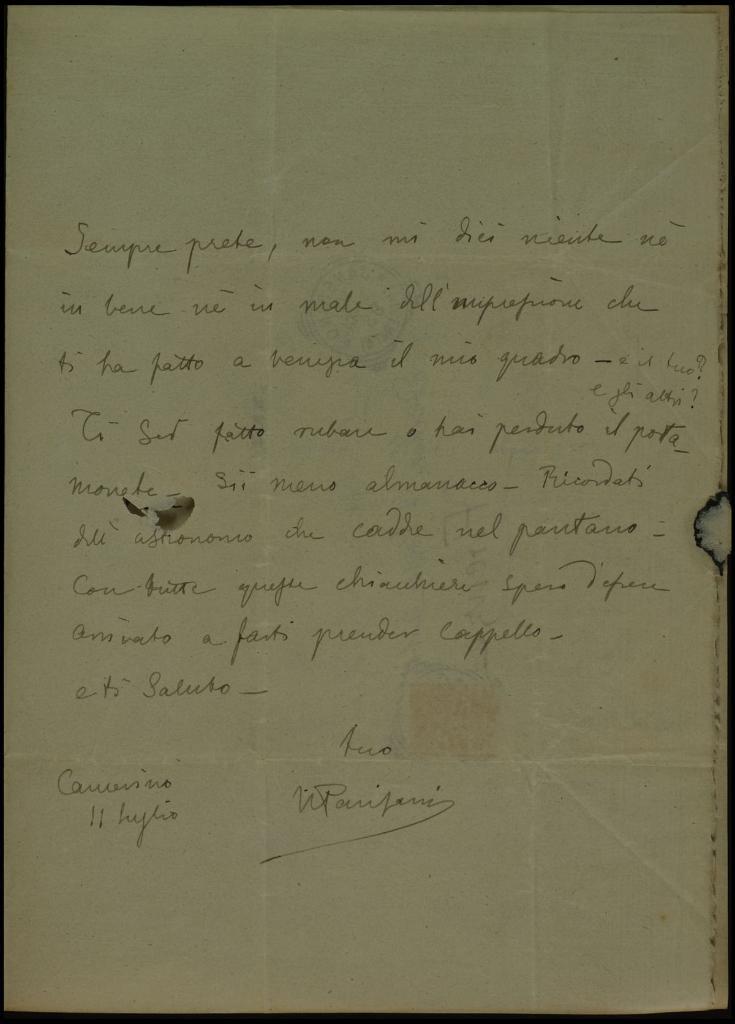 Sempre prete, non mi dici niente nè
in bene nè in male dell'impressione che
ti ha fatto a Venezia il mio quadro — e il tuo?
e gli altri?
Ti sei fatto rubare o hai perduto il porta
monete — Sii meno almanacco — Ricordati
dell'astronomo che cadde nel pantano —
Con tutte queste chiacchiere spero d'essere
arrivato a farti prender cappello —
e ti saluto —
tuo
Camerino
11 luglio